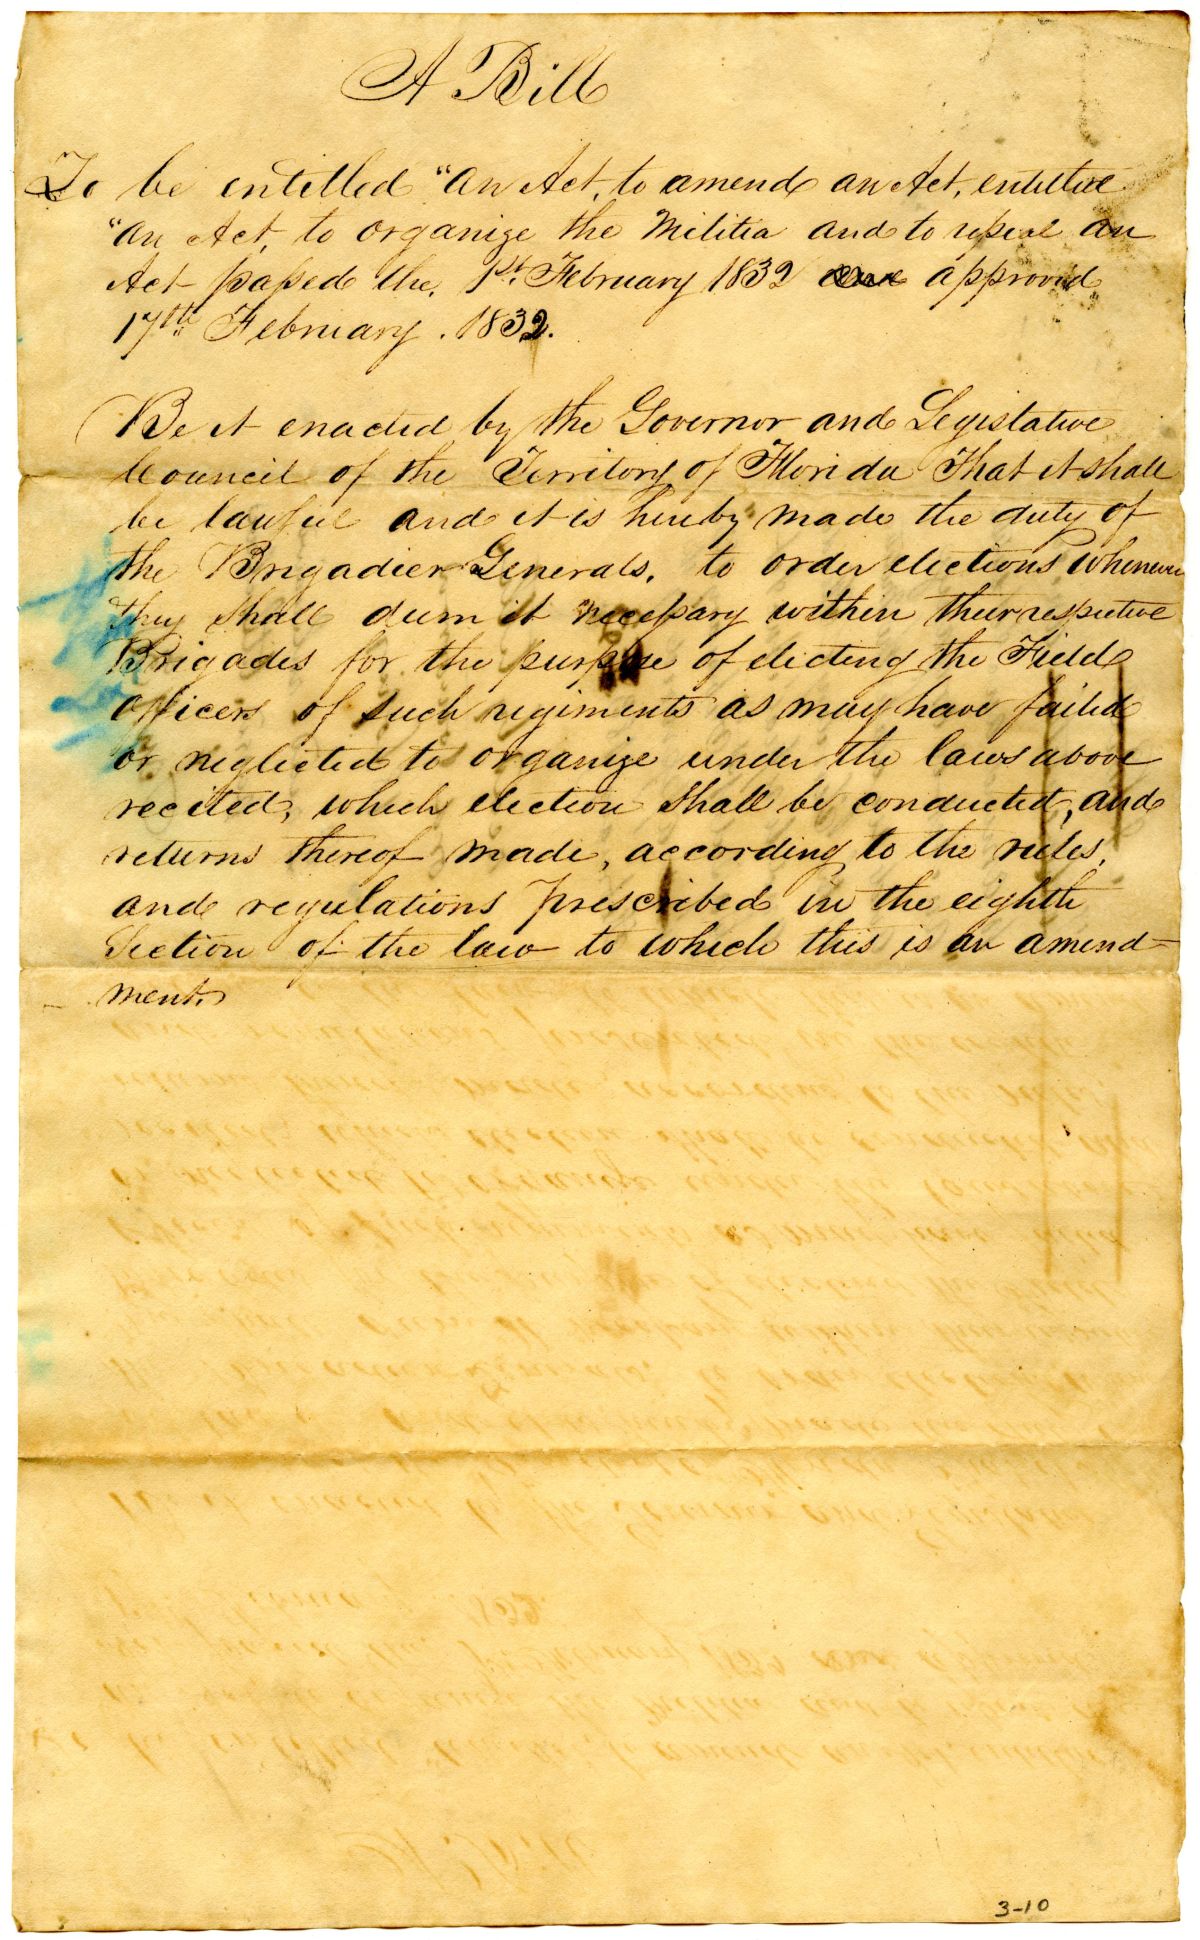 A Bill
To be entitled "An Act, to amend an Act, entitled
"An Act, to organize the Militia and to repeal an
Act passed the, 1st. February 1832 and approved
17th February. 1832.
Be it enacted by the Governor and Legislative
Council of the Territory of Florida That it shall
be lawful and it is hereby made the duty of
the Brigadier Generals, to order elections whenever
they shall deem it necessary within their respective
Brigades for the purpose of electing the Field
Officers of such regiments as may have failed
or neglected to organize under the laws above
recited, which election shall be conducted, and
returns thereof made, according to the rules,
and regulations prescribed in the eighth
Section of the law to which this is an amend-
ment.
3-10